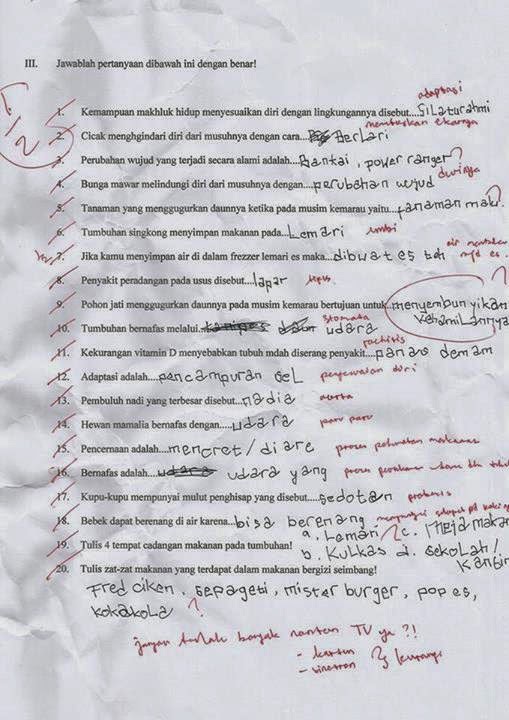 III. Jawablah pertanyaan dibawah ini dengan benar!
adaptasi
1. Kemampuan makhluk hidup menyesuaikan diri dengan lingkungannya disebut...Silaturahmi
memutuskan ekornya
2. Cicak menghgindari diri dari musuhnya dengan cara... Berlari
3. Perubahan wujud yang terjadi secara alami adalah...Bantai, power ranger ?
durinya
4. Bunga mawar melindungi diri dari musuhnya dengan....perubahan wujud
5. Tanaman yang menggugurkan daunnya ketika pada musim kemarau yaitu...tanaman maki. ?
6. Tumbuhan singkong menyimpan makanan pada....Lemari umbi
air
7. Jika kamu menyimpan air di dalam frezzer lemari es maka...dibwat es teh mjd es.
8. Penyakit peradangan pada usus disebut...lapar tipus ?
9. Pohon jati menggugurkan daunnya pada musim kemarau bertujuan untuk...menyembunyikan
kehamilannya
stomata
10. Tumbuhan bernafas melalui... udara
rachitis
11. Kekurangan vitamin D menyebabkan tubuh mdah diserang penyakit...panas demam
12. Adaptasi adalah....pencampuran sel penyesuaian diri
13. Pembuluh nadi yang terbesar disebut...nadia aorta
14. Hewan mamalia bernafas dengan.....udara paru paru
15. Pencernaan adalah....mencret/diare proses pelumatan makanan
16. Bernafas adalah.... udara yang proses
17. Kupu-kupu mempunyai mulut penghisap yang disebut.....sedotan probosis
18. Bebek dapat berenang di air karena...bisa berenang mempunyai selaput pd kaki
19. Tulis 4 tempat cadangan makanan pada tumbuhan! a. Lemari ? c. Meja makan
b. Kulkas d. sekolah/
kantin
20. Tulis zat-zat makanan yang terdapat dalam makanan bergizi seimbang!
Fred ciken, sepageti, mister burger, pop es,
kokakola ?
jangan terlalu banyak nonton TV ya ?!
- kartun
- sinetron kurangi